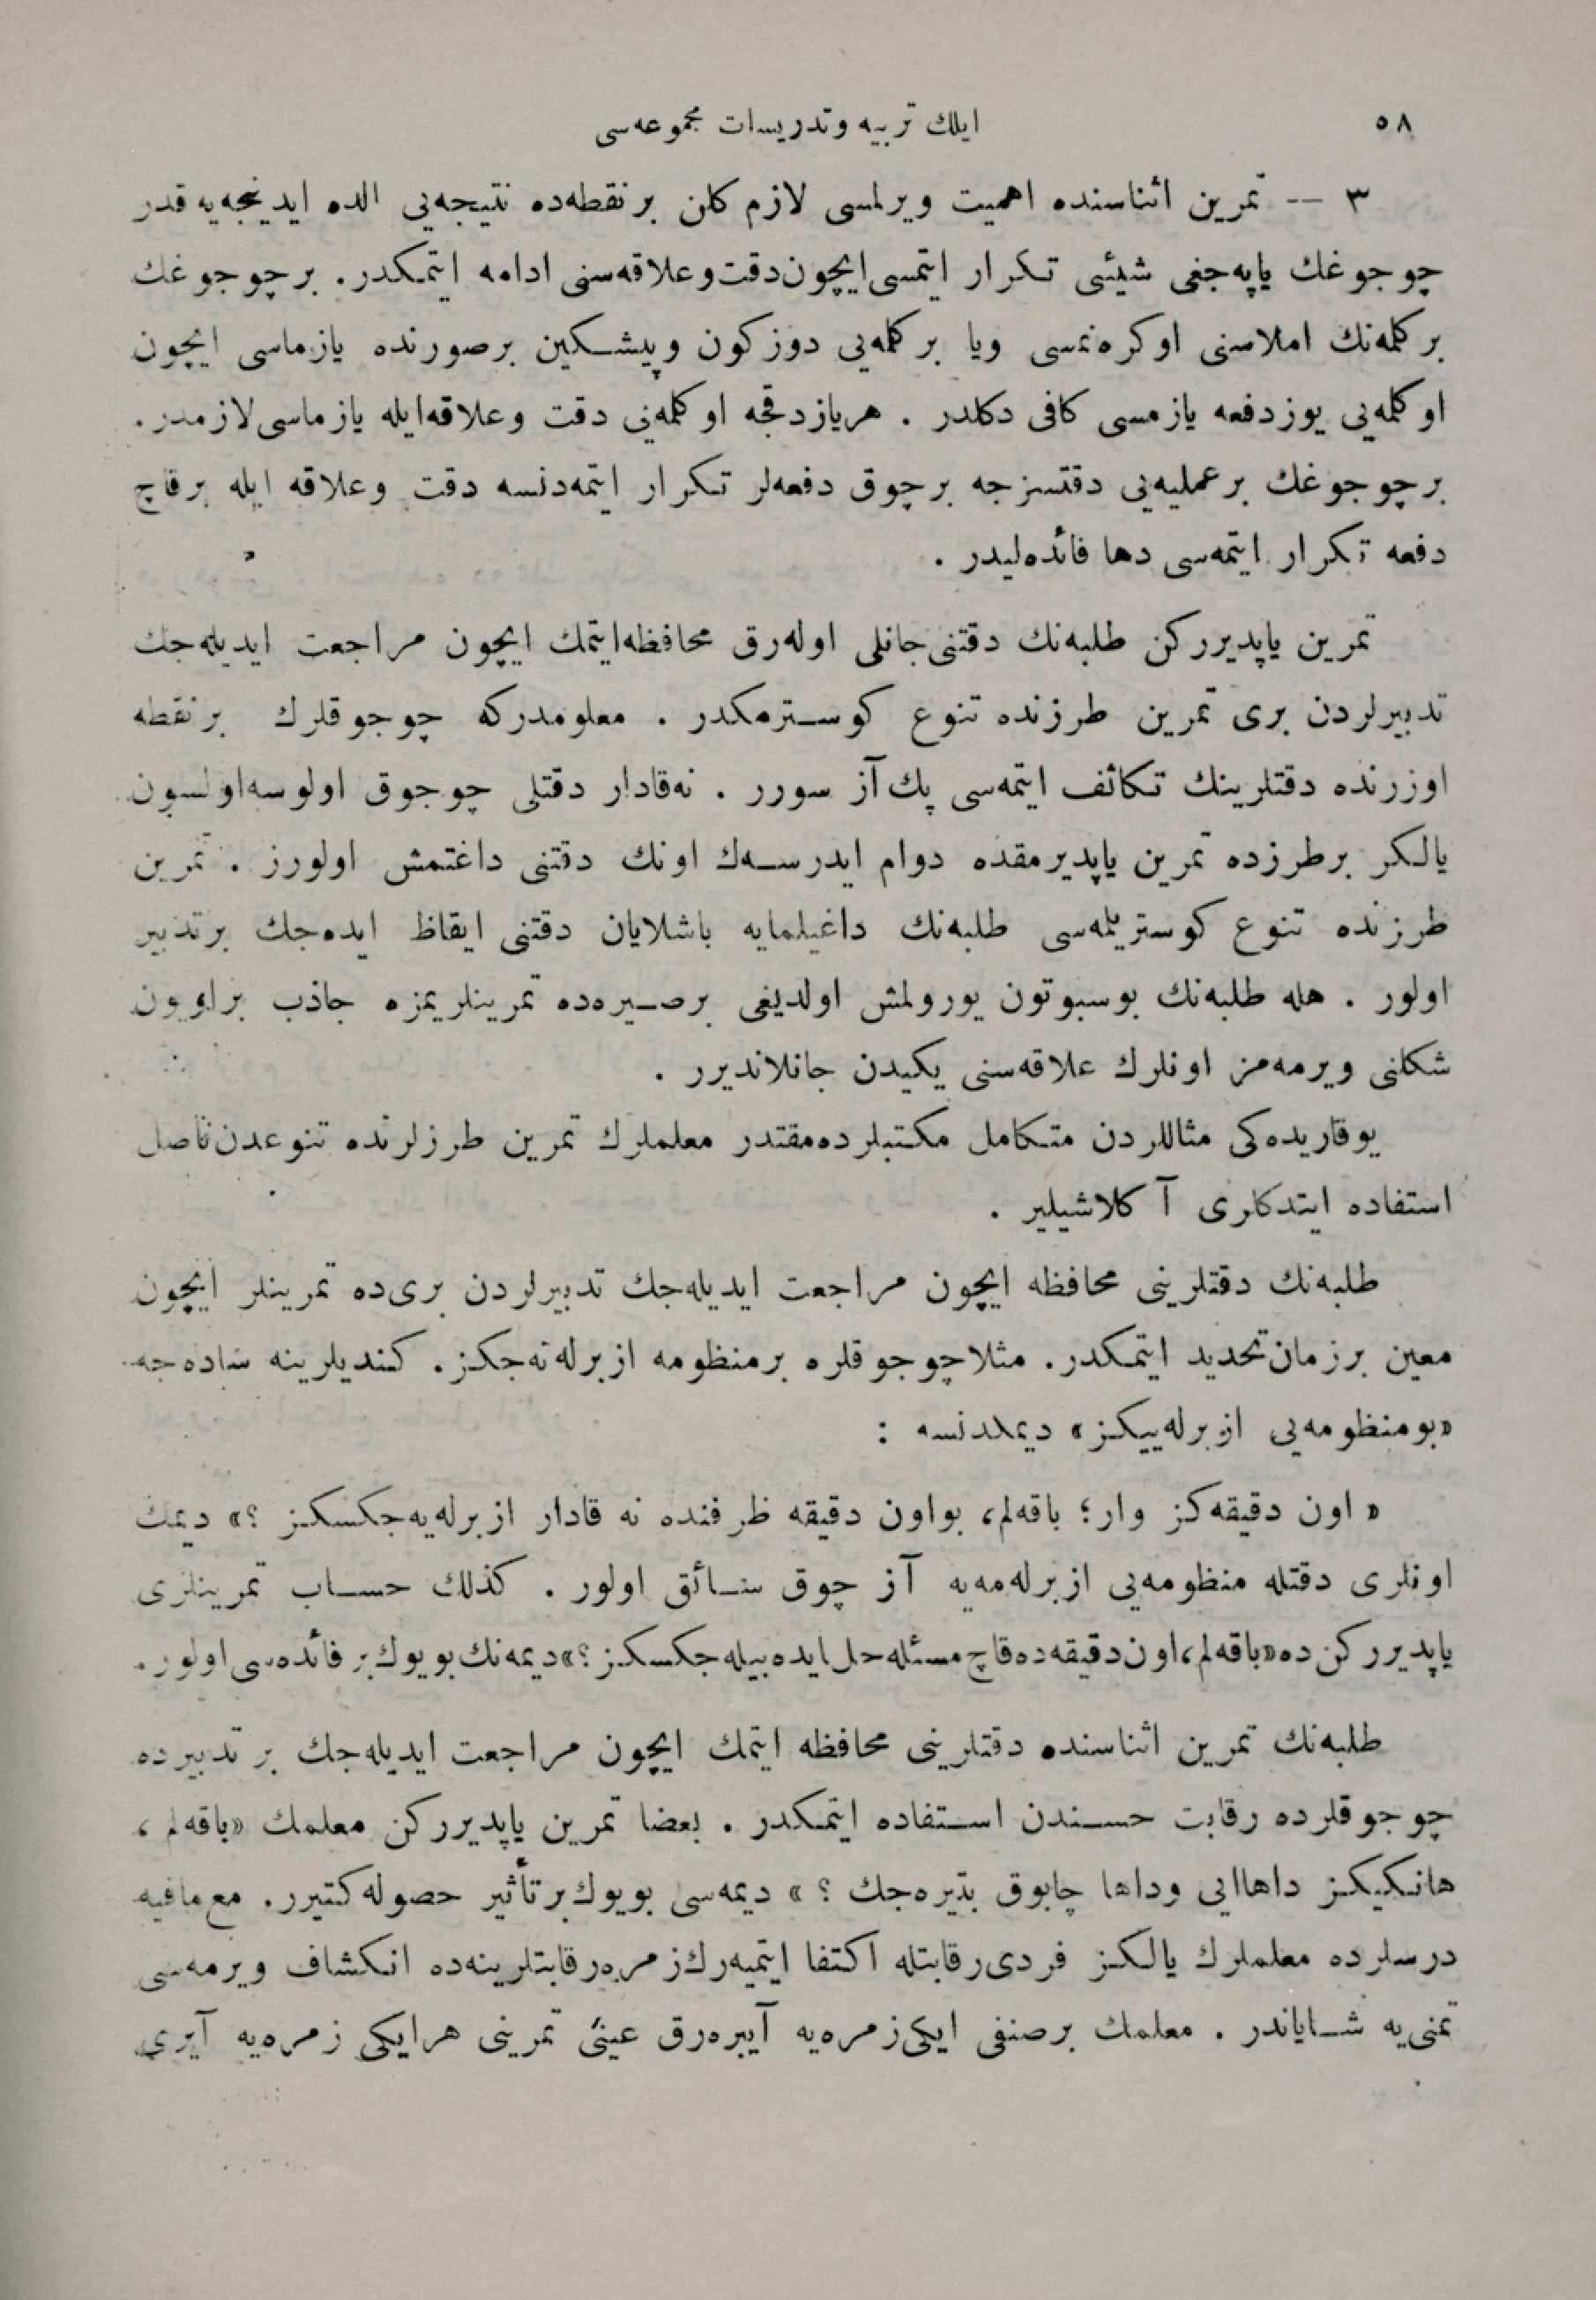 ٥٨
ايلك تربيه وتدريسات مجموعه‌سى
٣ — تمرين اثناسنده اهميت ويرلمسى لازم كان بر نقطه‌ده نتيجه‌يى الده ايدنجه‌يه قدر
چوجوغك ياپه‌جغى شيئى تكرار ايتمسى ايچون دقت وعلاقه‌سنى ادامه ايتمكدر. بر چوجوغك
بر كلمه‌نك املاسنى اوكره‌نمسى ويا بر كلمه‌يى دوزكون وپيشكين برصورنده يازماسى ايچون
او كلمه‌يى يوز دفعه يازمسى كافى دكلدر . هر يازدقجه او كلمه‌يى دقت وعلاقه ايله يازماسى لازمدر.
بر چوجوغك بر عمليه‌يى دقتسزجه بر چوق دفعه‌لر تكرار ايتمه‌دنسه دقت وعلاقه ايله بر قاچ
دفعه تكرار ايتمه‌سى دها فائده‌ليدر .
تمرين ياپديرركن طلبه‌نك دقتنى جانلى اوله‌رق محافظه ايتمك ايچون مراجعت ايديله‌جك
تدبيرلردن برى تمرين طرزنده تنوع كوسترمكدر . معلومدركه چوجوقلرك بر نقطه
اوزرنده دقتلرينك تكاثف ايتمه‌سى پك آز سورر . نه‌قادار دقتلى چوجوق اولوسه‌اولسون
يالكر برطرزده تمرين ياپديرمقده دوام ايدرسه‌ك اونك دقتنى داغتمش اولورز . تمرين
طرزنده تنوع كوستريلمه‌سى طلبه‌نك داغيلمايه باشلايان دقتنى ايقاظ ايده‌جك بر تدبير
اولور . هله طلبه‌نك بوسبوتون يورولمش اولديغى برصيره‌ده تمرينلريمزه جاذب بر اويون
شكلنى ويرمه‌مز اونلرك علاقه‌سنى يكيدن جانلانديرر .
يوقاريده‌كى مثاللردن متكامل مكتبلرده مقتدر معلملرك تمرين طرزلرنده تنوعدن ناصل
استفاده ايتدكلرى آكلاشيلير .
طلبه‌نك دقتلرينى محافظه ايچون مراجعت ايديله‌جك تدبيرلردن برى‌ده تمرينلر ايچون
معين بر زمان تحديد ايتمكدر. مثلا چوجوقلره بر منظومه ازبرله‌ته‌جكز. كنديلرينه ساده‌جه
«بو منظومه‌يى ازبرله‌ييكز» ديمكدنسه :
« اون دقيقه‌كز وار؛ باقه‌لم، بو اون دقيقه ظرفنده نه قادار ازبرله‌يه‌جكسكز ؟» ديمك
اونلرى دقتله منظومه‌يى ازبرله‌مه‌يه آز چوق سائق اولور . كذلك حساب تمرينلرى
ياپديرركن ده «باقه‌لم، اون دقيقه‌ده قاچ مسئله حل ايده بيله جكسكز ؟» ديمه‌نك بويوك بر فائده‌سى اولور.
طلبه‌نك تمرين اثناسنده دقتلرينى محافظه ايتمك ايچون مراجعت ايديله‌جك بر تدبير ده
چوجوقلرده رقابت حسندن استفاده ايتمكدر . بعضا تمرين ياپديرركن معلمك «باقه‌لم ،
هانكيكز داها ايى وداها چابوق بتيره‌جك ؟ » ديمه‌سى بويوك بر تأثير حصوله كتيرر. مع‌مافيه
درسلرده معلملرك يالكز فردى رقابتله اكتفا ايتميه‌رك زمره رقابتلرينه‌ده انكشاف ويرمه‌سى
تمنى‌يه شاياندر . معلمك برصنفى ايكى زمره‌يه آييره‌رق عينئ تمرينى هر ايكى زمره‌يه آيرى